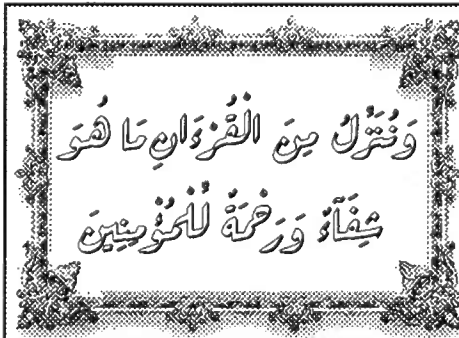 وَنُنَزِّلُ مِنَ الْقُرْءَانِ مَا هُوَ
شِفَآءٌ وَرَحْمَةٌ لِّلْمُؤْمِنِينَ